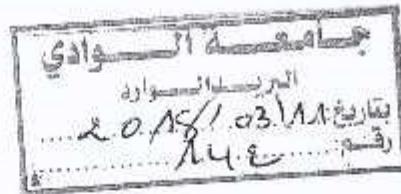 جامعة الوادي
البريد الوارد
بتاريخ: 2015/03/11
رقم: